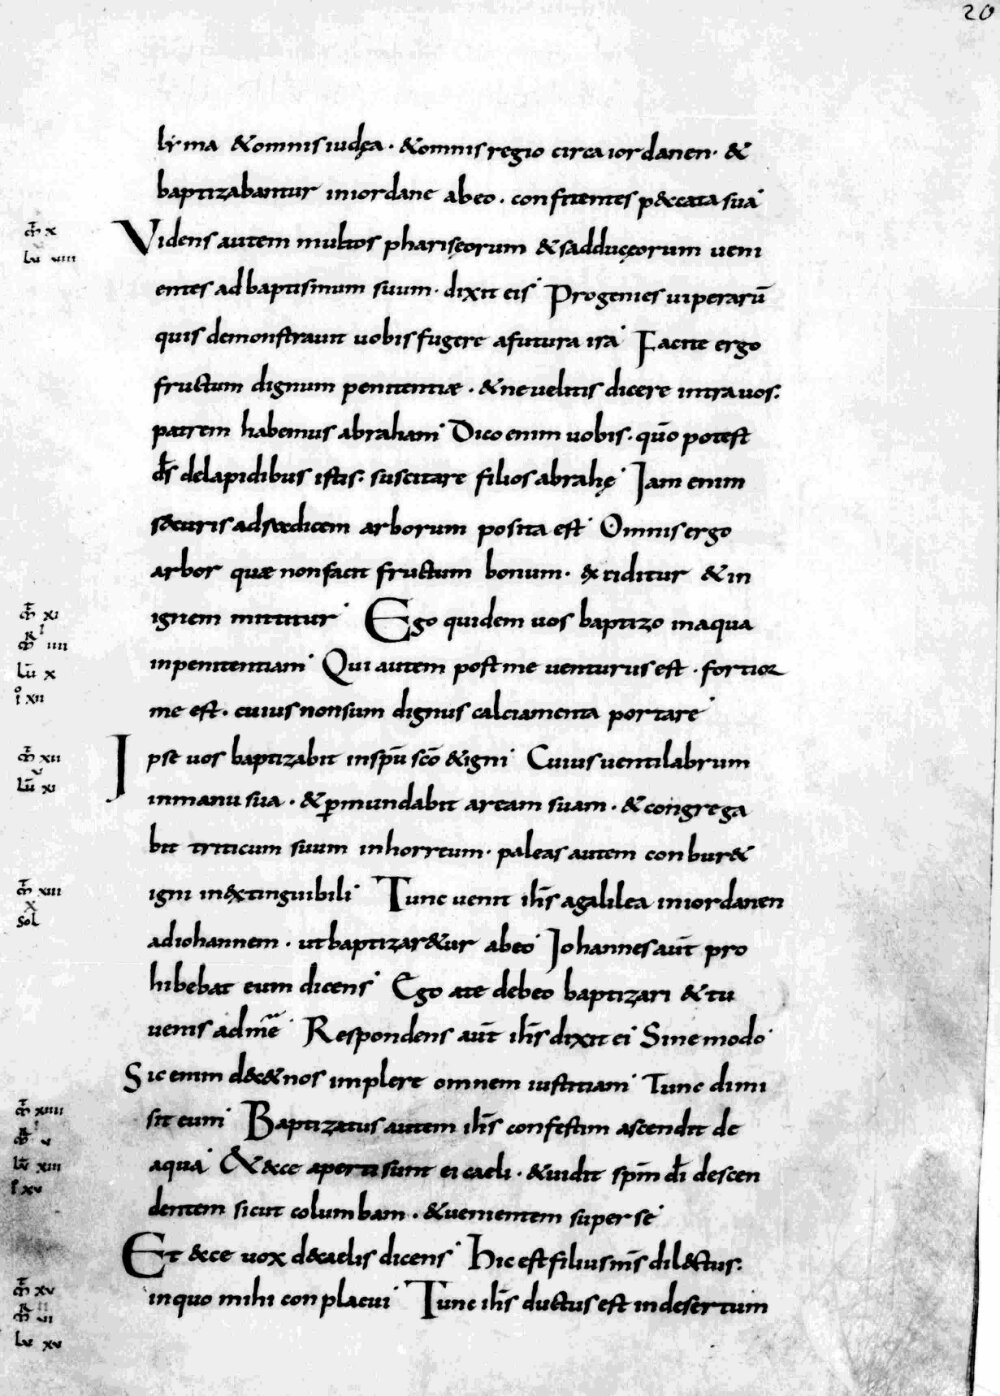 20
lyma & omnis iudęa · & omnis regio circa iordanen · &
baptizabantur iniordane abeo · confitentes p&ccata sua
Videns autem multos pharisęorum & sadducęorum veni
entes ad baptismum suum · dixit eis Progenies uiperarū
quis demonstrauit uobis fugere afutura ira Facite ergo
fructum dignum penitentiæ · & ne uelitis dicere intra uos:
patrem habemus abraham Dico enim uobis · quō potest
d̄s delapidibus istis: suscitare filios abrahę Iam enim
s&curis ad radicem arborum posita est Omnis ergo
arbor quæ non facit fructum bonum · exciditur & in
ignem mittitur Ego quidem uos baptizo inaqua
inpenitentiam Qui autem post me uenturus est · fortior
me est · cuius non sum dignus calciamenta portare
Ipse uos baptizabit inspū scō & igni Cuius uentilabrum
inmanu sua · & p̱mundabit aream suam · & congrega
bit triticum suum inhorreum · paleas autem conbur&
igni inextinguibili Tunc uenit ih̄s agalilea iniordanen
adiohannem · ut baptizar&ur abeo Iohannes aut̄ pro
hibebat eum dicens Ego ate debeo baptizari & tu
uenis admē Respondens aut̄ ih̄s dixit ei Sine modo
Sic enim dec&nos implere omnem iustitiam Tunc dimi
sit eum Baptizatus autem ih̄s confestim ascendit de
aqua & ecce aperti sunt ei caeli · & uidit spm̄ dī descen
dentem sicut columbam · & uenientem super se
Et &cce uox decaelis dicens Hic est filius m̄s dilectus:
inquo mihi conplacui Tunc ih̄s ductus est indesertum
m̄ x
lu viiii
m̄ xi
m̄r i iiii
lū x
iº xii
m̄ xii
lū xi
m̄ xiii
x
sol
m̄ xiiii
m̄r i v
lū xiii
i xv
m̄ xv
m̄r ii vi
lu xv